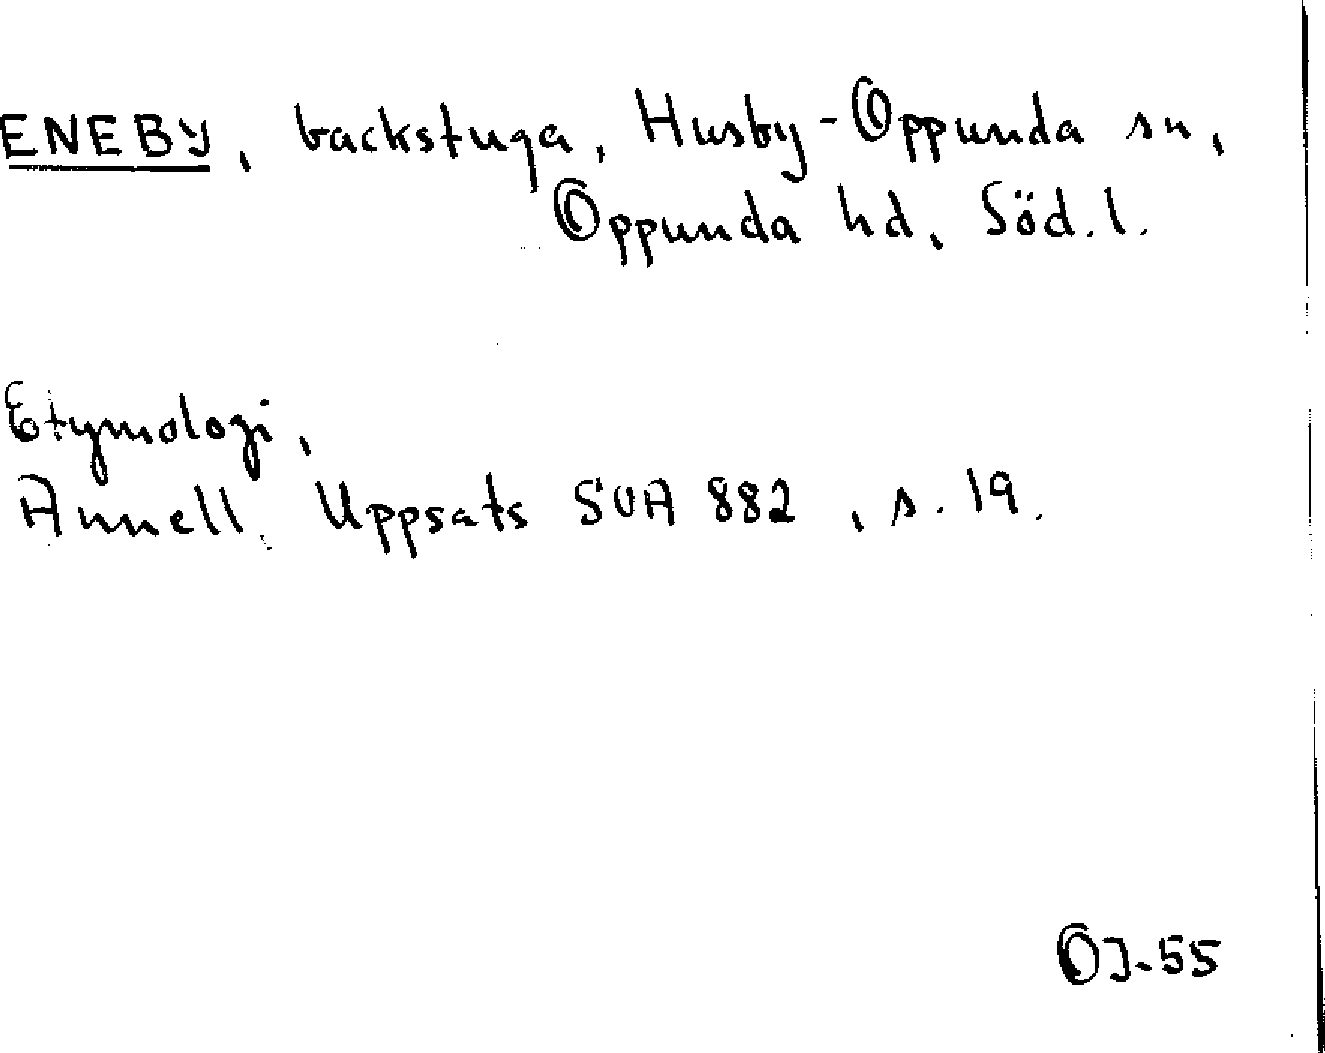 ENEBY, backstuga, Husby-Oppunda sn,
Oppunda hd, Söd.l.
Etymologi,
Annell, Uppsats SOA 882, s. 19.
OJ-55